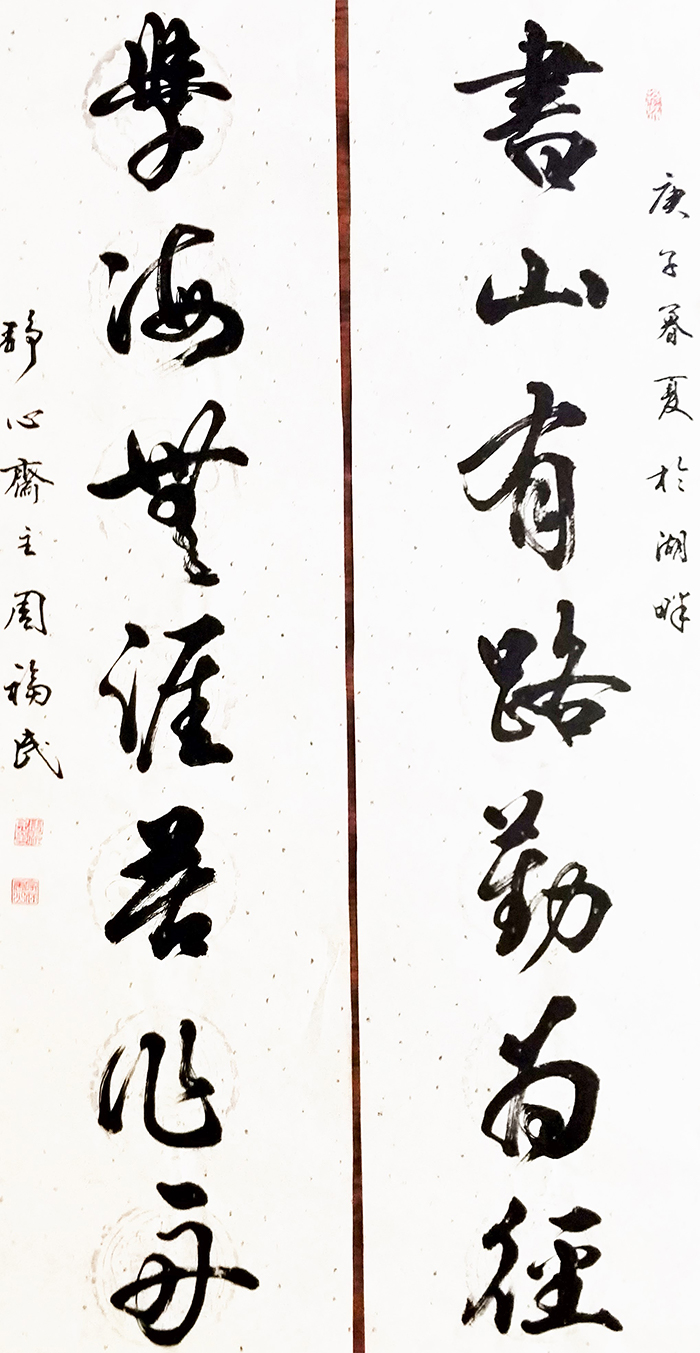 庚子春夏於湖畔
書山有路勤为徑
學海無涯苦作舟
靜心齋主周福民